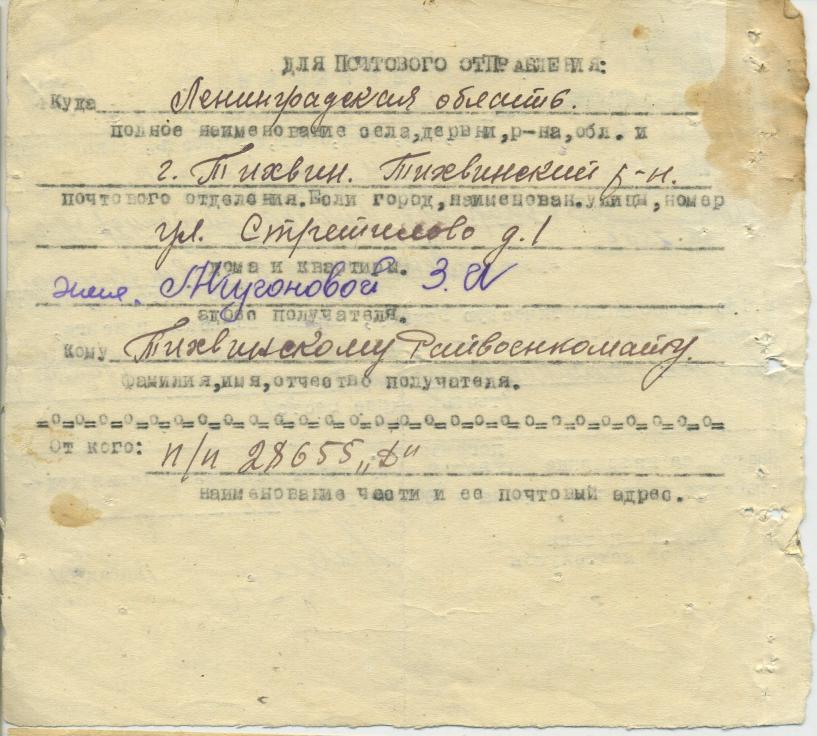 ДЛЯ ПОЧТОВОГО ОТПРАВЛЕНИЯ:
Куда Ленинградская область.
полное наименование села, дервни, р-на, обл. и
г. Тихвин. Тихвинский р-н.
почтового отделения. Если город, наименован. улицы, номер
ул. Стретилово д. 1
дома и квартиры.
З. И
адрес получателя.
Кому Тихвинскому Райвоенкомату.
фамилия, имя, отчество получателя.
=o=o=o=o=o=o=o=o=o=o=o=o=o=o=o=o=o=o=o=o=o=o=o=o=o=
От кого: п/п 28655 „Д"
наименование части и ее почтовый адрес.